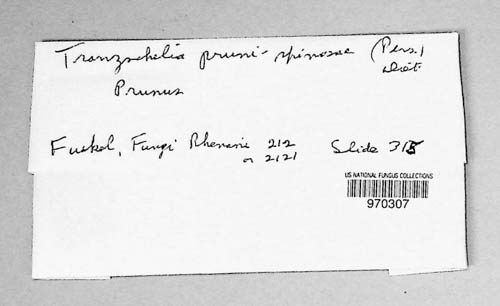 Tranzschelia pruni-spinosae (Pers.)
Diet.
Prunus
Fuckel, Fungi Rhenani 212 Slide 315
or 2121
US NATIONAL FUNGUS COLLECTIONS
970307